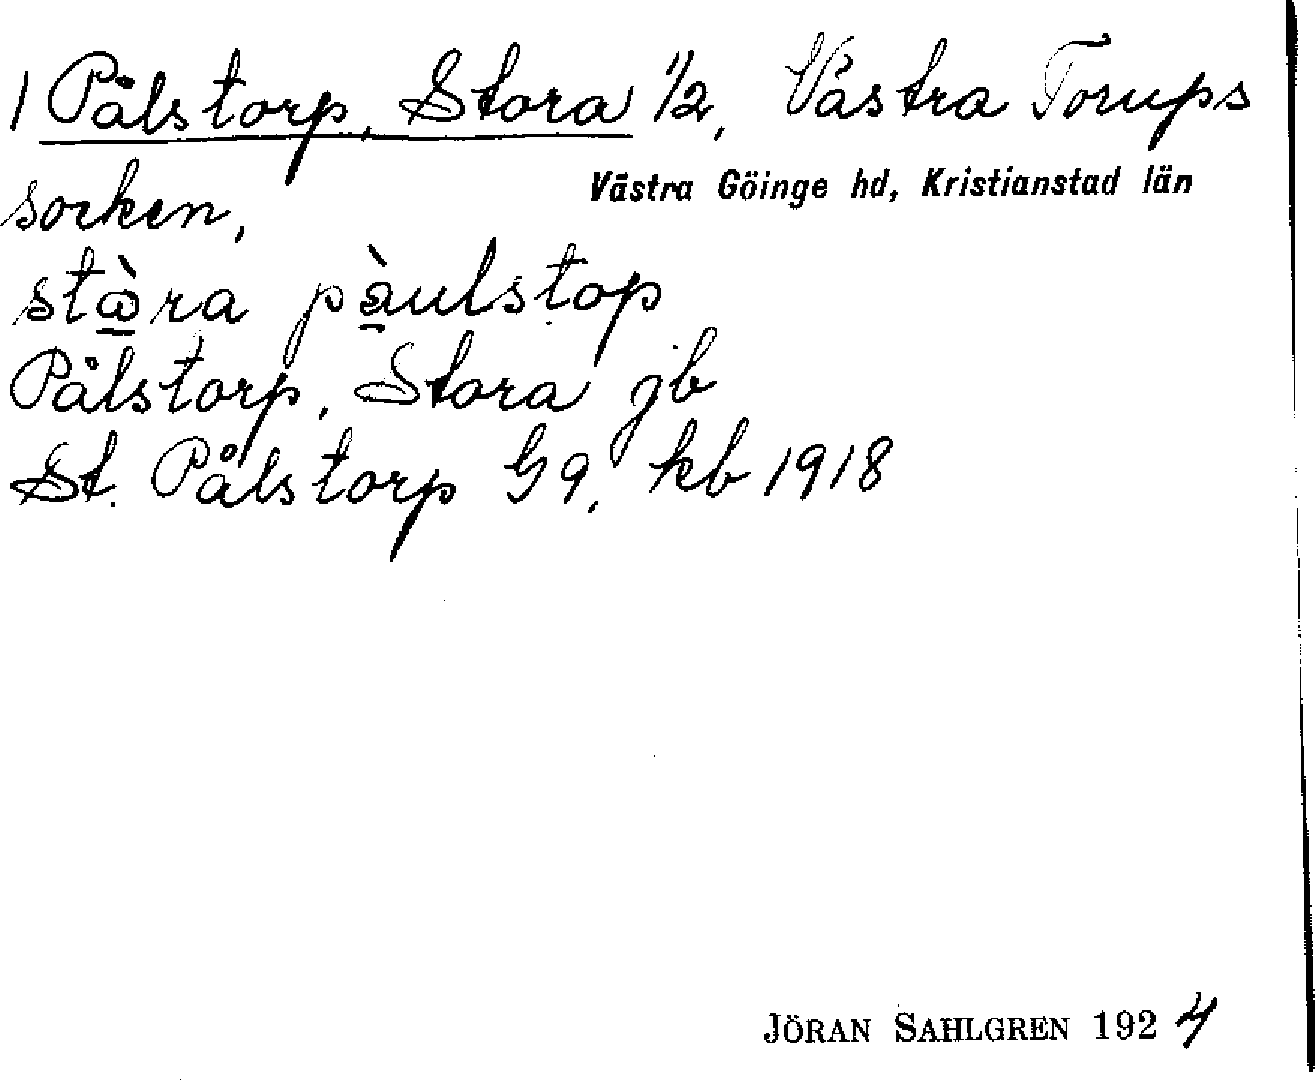 1 Pålstorp, Stora 1/2, Västra Torups
socken,
Västra Göinge hd, Kristianstad län
Pålstorp, Stora jb
St. Pålstorp G9, kb 1918
JÖRAN SAHLGREN 1924